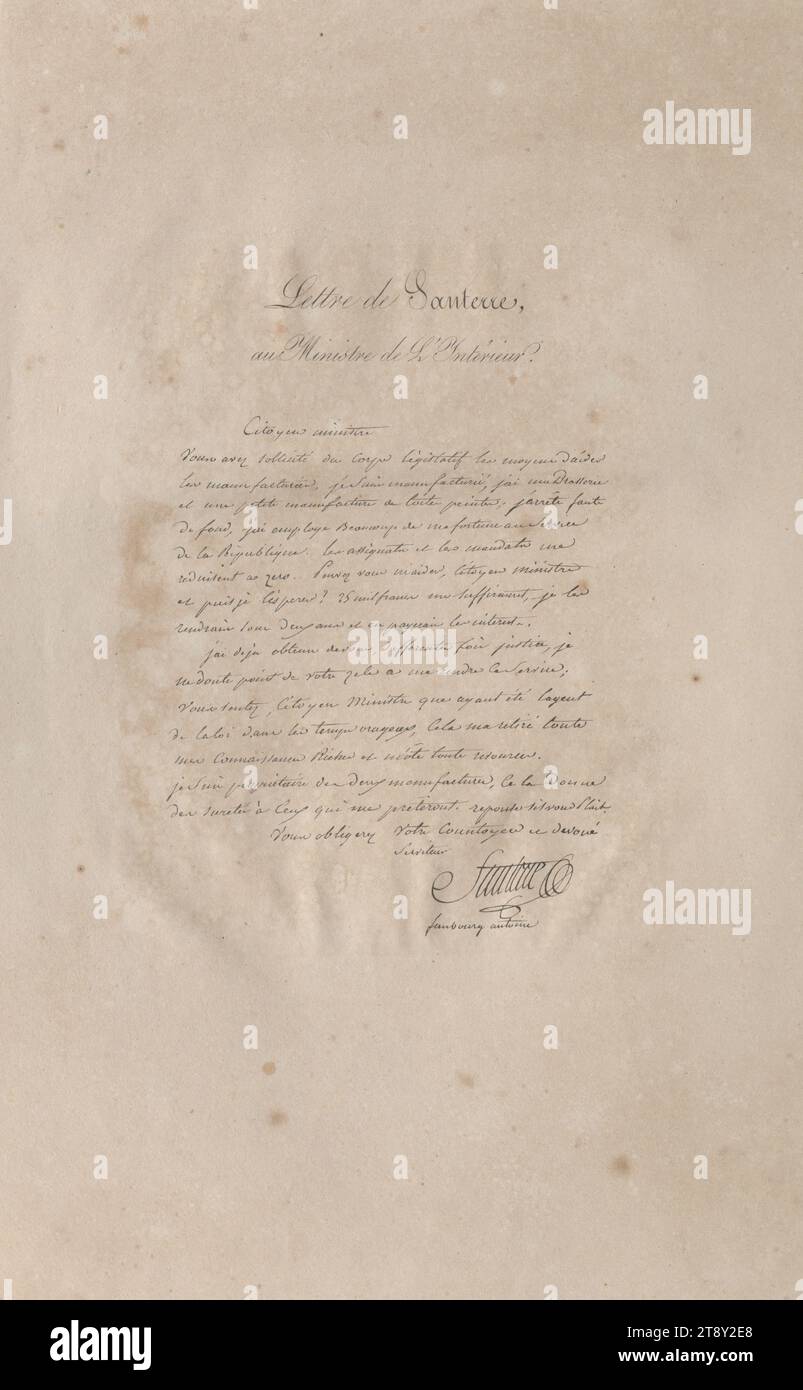 Lettre de Santerre,
au Ministre de L'Intérieur.
Citoyen ministre
Vous avez sollicité du Corps législatif les moyens d'aider
les manufacturiers, je suis manufacturié, j'ai une Brasserie
et une petite manufacture de toile peinte, j'arrête faute
de fond, j'ai employé Beaucoup de ma fortune au Service
de la République. les assignats et les mandats me
reduisent a zero. Pouvez vous m'aider, Citoyen ministre
et puis je l'esperer? 25 mil francs me suffiroient, je les
rendrais sous deux ans et en payerais les interets.
j'ai deja obtenu de vous, differentes fois justice, je
ne doute point de votre zele a me rendre ce Service;
Vous sentez, Citoyen Ministre que ayant été l'agent
de la loi dans les temps orageux, Cela m'a retiré toute
mes Connaissances Riches et m'ôte toute resource.
je suis propriétaire des deux manufactures, Ce la Donne
des suretés à Ceux qui me prêteront. reponse s'il vous Plait.
Vous obligerez Votre Concitoyen et devoué
Serviteur
Santerre
faubourg antoine
alamy
alamy
a a a a a a a a a a a a
alamy
Image ID: 2T8Y2E8
www.alamy.com